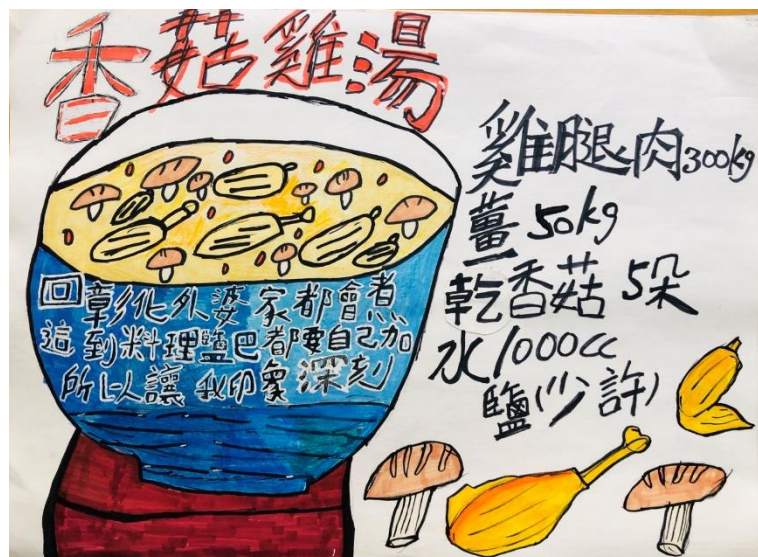 香菇雞湯
雞腿肉300kg
薑50kg
乾香菇5朵
水1000cc
鹽(少許)
回彰化外婆家都會煮
這到料理鹽巴都要自己加
所以讓我印象深刻